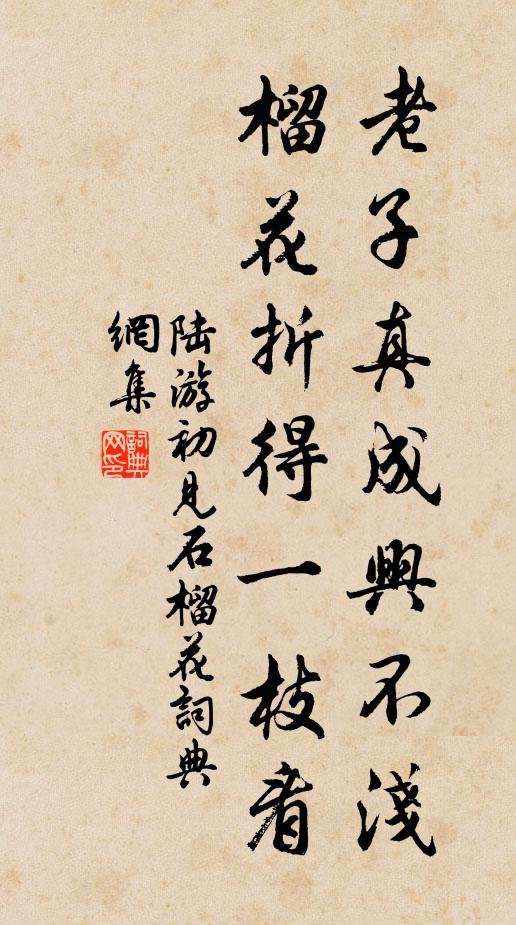 老子真成興不淺
榴花折得一枝看
陆游初見石榴花詞典
網集
詞典
网印